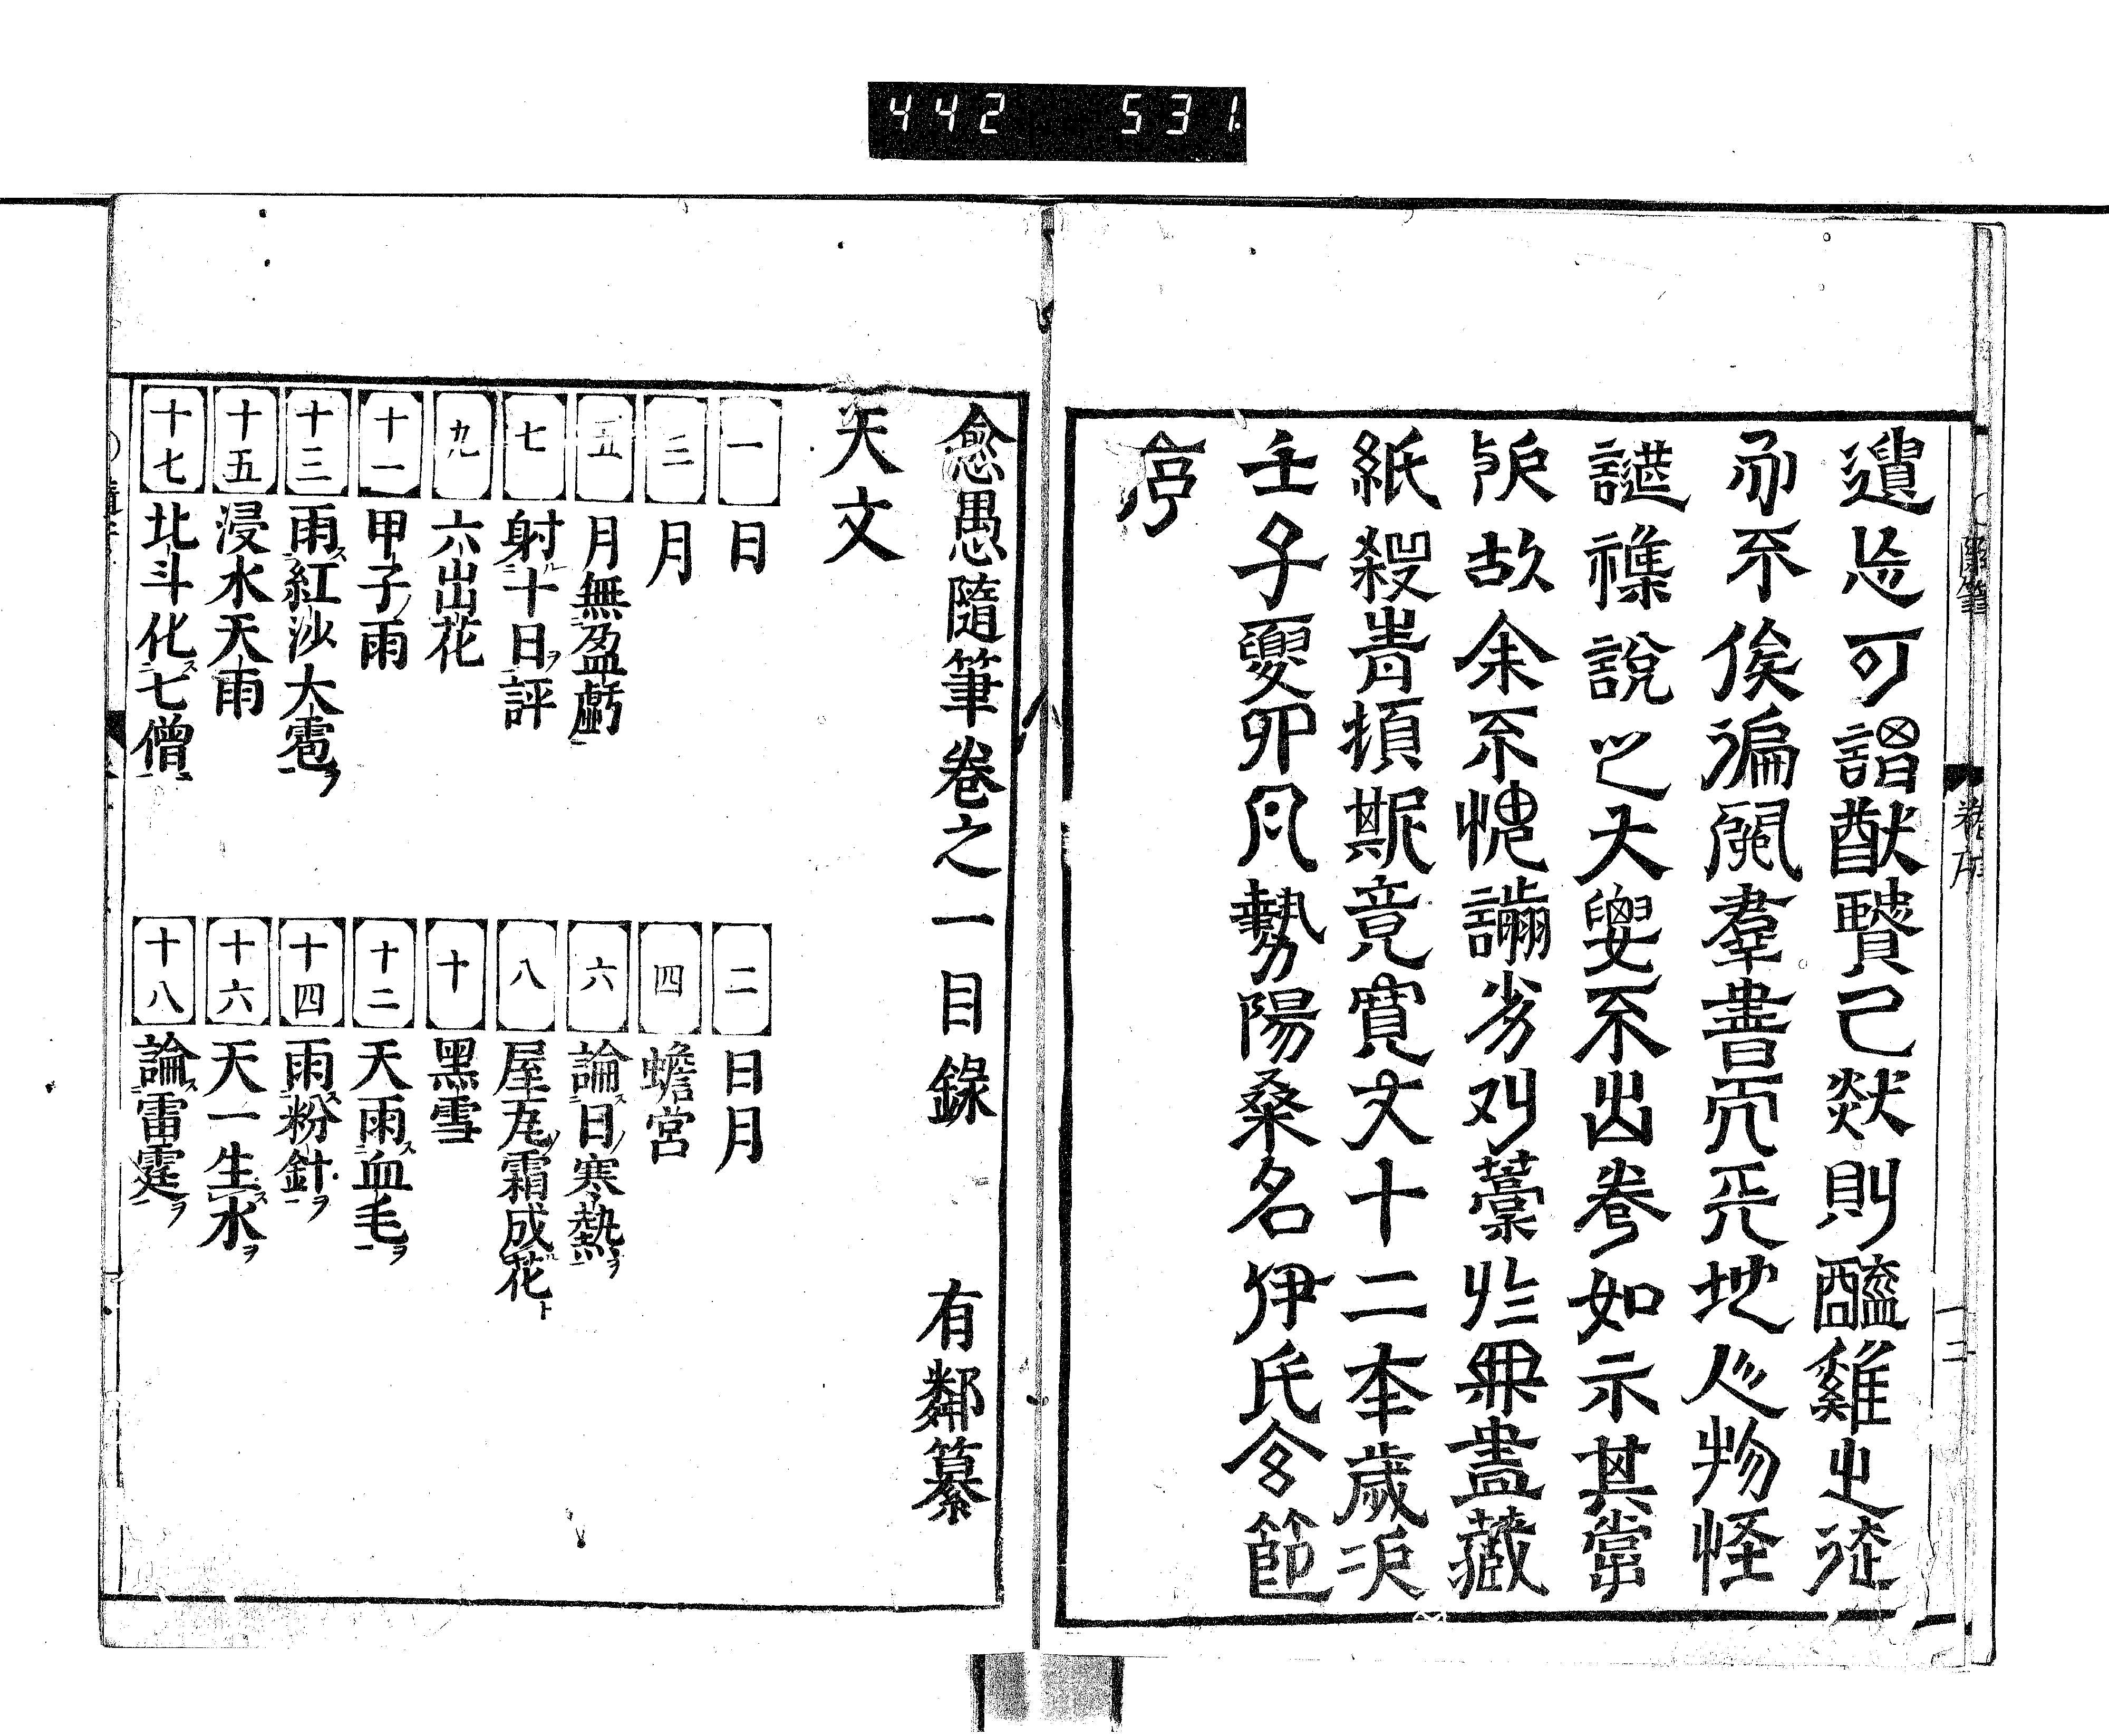 442 531.
遺忘可謂猷賢已然則醯雞之徒
尓不俟徧閱羣書究天地人物怪
說之大要不出卷如示其掌
故余不愧譾劣刋藁於册盡藏
紙殺青頓斯竟寛文十二本歲次
壬子夏卯月勢陽桑名伊氏命節
序
愈愚隨筆卷之一目錄 有鄰纂
天文
一 日
二 日月
三 月
四 蟾宮
五 月無盈虧
六 論日寒熱
七 射十日評
八 屋瓦霜成花
九 六出花
十 黑雪
十一 甲子雨
十二 天雨血毛
十三 雨紅沙大雹
十四 雨粉針
十五 浸水天雨
十六 天一生水
十七 北斗化七僧
十八 論雷霆